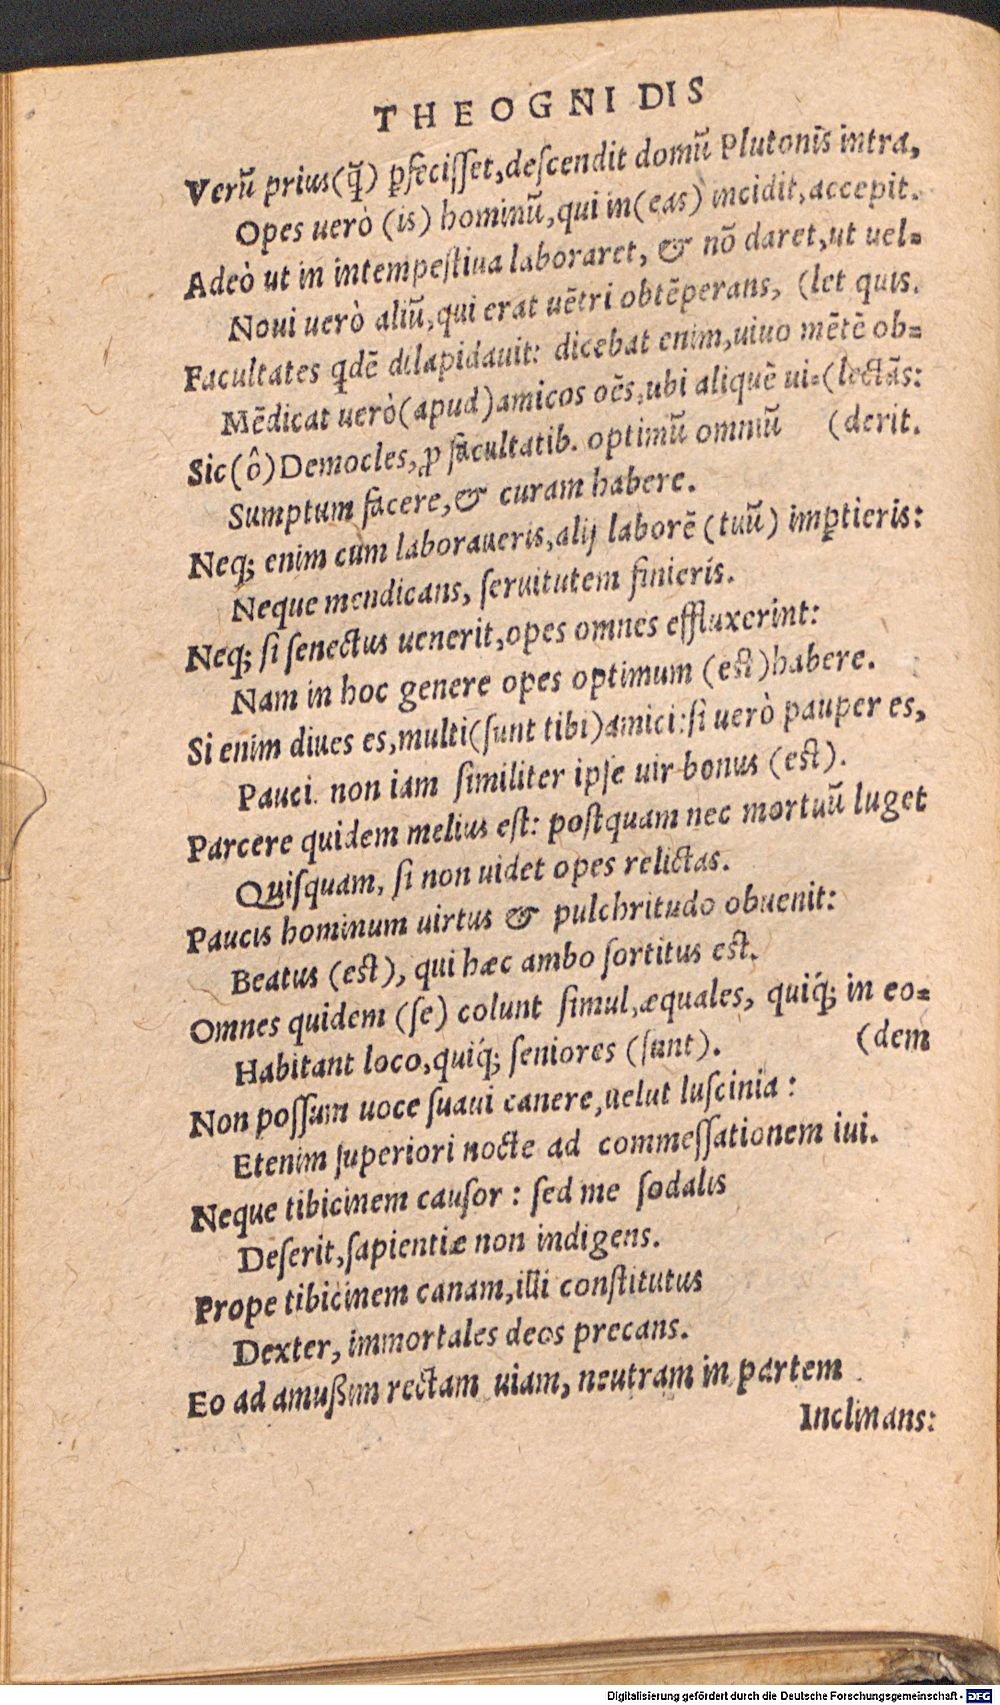 THEOGNIDIS
Verũ prius(q̃) ꝑfecisset,descendit domũ Plutonis intra,
Opes uerò (is) hominũ,qui in(eas) incidit,accepit.
Adeò ut in intempestiua laboraret, & nõ daret,ut uel=
Noui uerò aliũ,qui erat uẽtri obtẽperans, (let quis.
Facultates qdẽ dilapidauit: dicebat enim,uiuo mẽtẽ ob=
Mẽdicat uerò(apud)amicos oẽs,ubi aliquẽ ui=(lectãs:
Sic(ô)Democles,ꝓ facultatib. optimũ omniũ (derit.
Sumptum facere,& curam habere.
Neq; enim cum laboraueris,alij laborẽ (tuũ) imꝑtieris:
Neque mendicans, seruitutem finieris.
Neq; si senectus uenerit,opes omnes effluxerint:
Nam in hoc genere opes optimum (est)habere.
Si enim diues es,multi(sunt tibi)amici:si uerò pauper es,
Pauci. non iam similiter ipse uir bonus (est).
Parcere quidem melius est: postquam nec mortuũ luget
Quisquam, si non uidet opes relictas.
Paucis hominum uirtus & pulchritudo obuenit:
Beatus (est), qui hæc ambo sortitus est.
Omnes quidem (se) colunt simul,æquales, quiq́; in eo=
Habitant loco,quiq́; seniores (sunt). (dem
Non possum uoce suaui canere,uelut luscinia :
Etenim superiori nocte ad commessationem iui.
Neque tibicinem causor : sed me sodalis
Deserit,sapientiæ non indigens.
Prope tibicinem canam,illi constitutus
Dexter, immortales deos precans.
Eo ad amußim rectam uiam, neutram in partem
Inclinans:
Digitalisierung gefördert durch die Deutsche Forschungsgemeinschaft - DFG